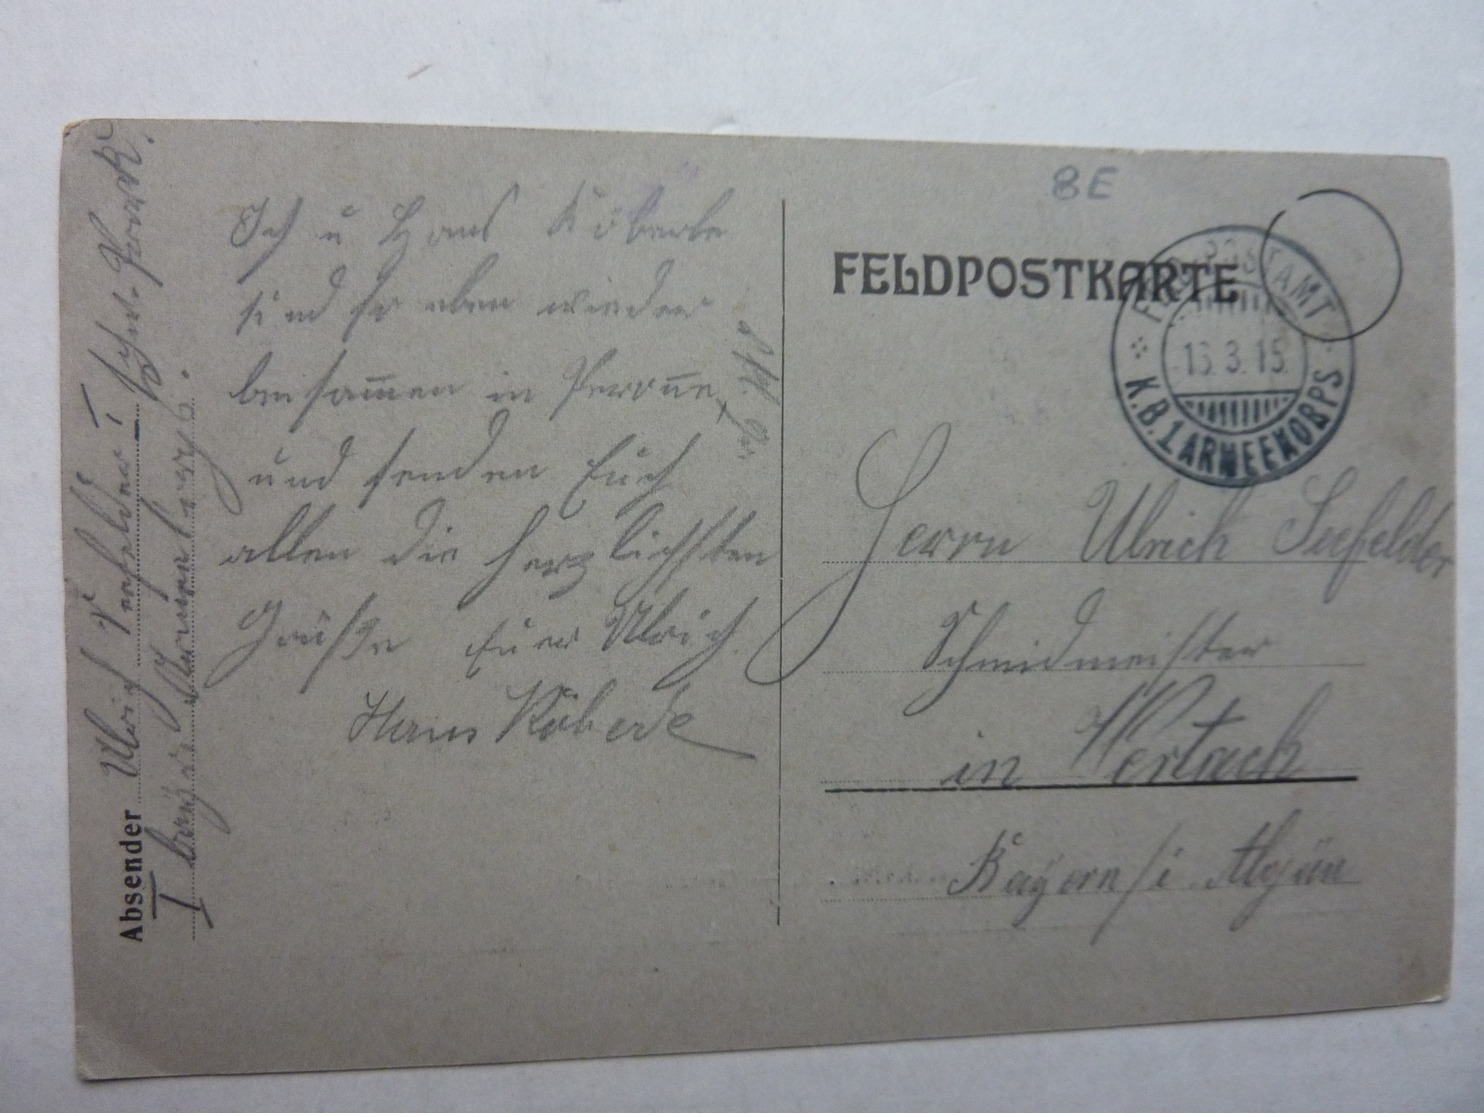 8E
FELDPOSTKARTE
FELDPOSTAMT
13.3.15.
K.B.1.ARMEEKORPS
Ich u Hans Köberle
sind so eben wieder
beisam̄en in Peron̄e,
und senden Euch
allen die herzlichsten
Grüße Euer Ulrich.
Hans Köberle
Herrn Ulrich Seefelder
Schmidmeister
in Wertach
Bayern / i Algäu
Absender Ulrich Seefelder
I bayr.